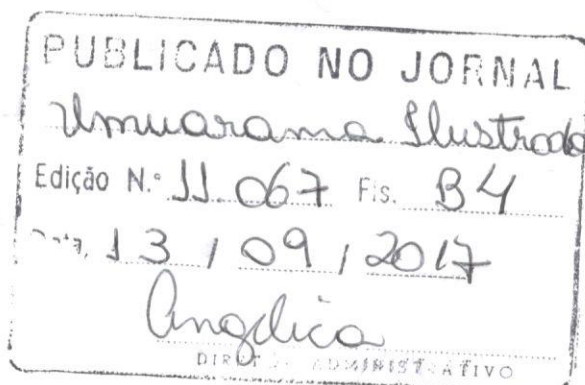 PUBLICADO NO JORNAL
Umuarama Ilustrado
Edição N.º 11.067 Fls. B4
Data, 13 / 09 / 2017
Angelica
DIRETOR ADMINISTRATIVO